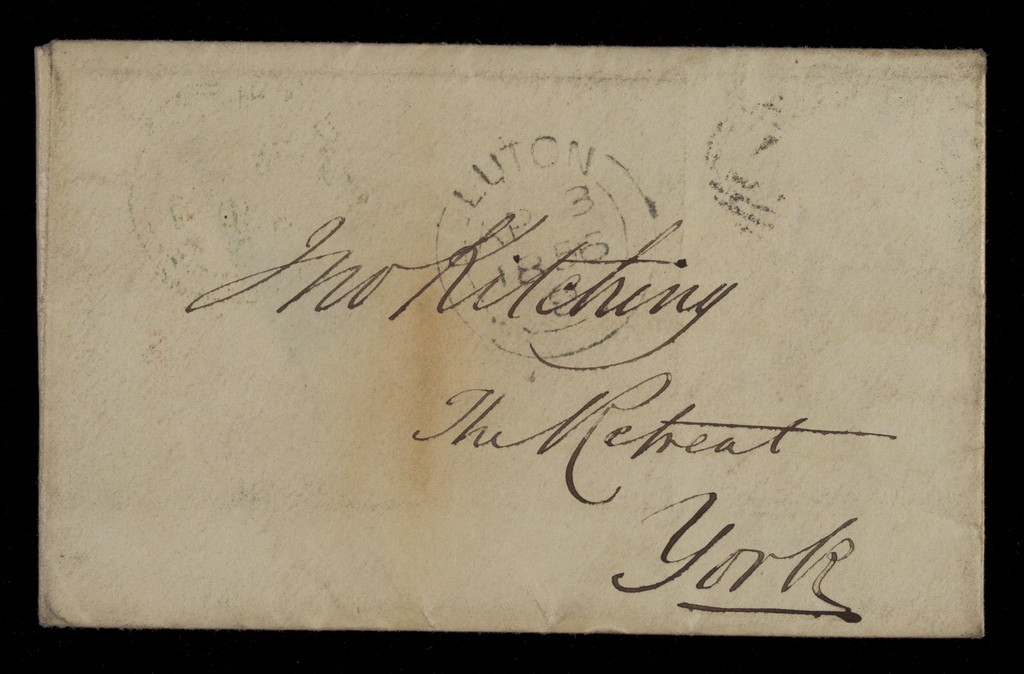 LUTON
AP 3
185
Jno Kitching
The Retreat
York